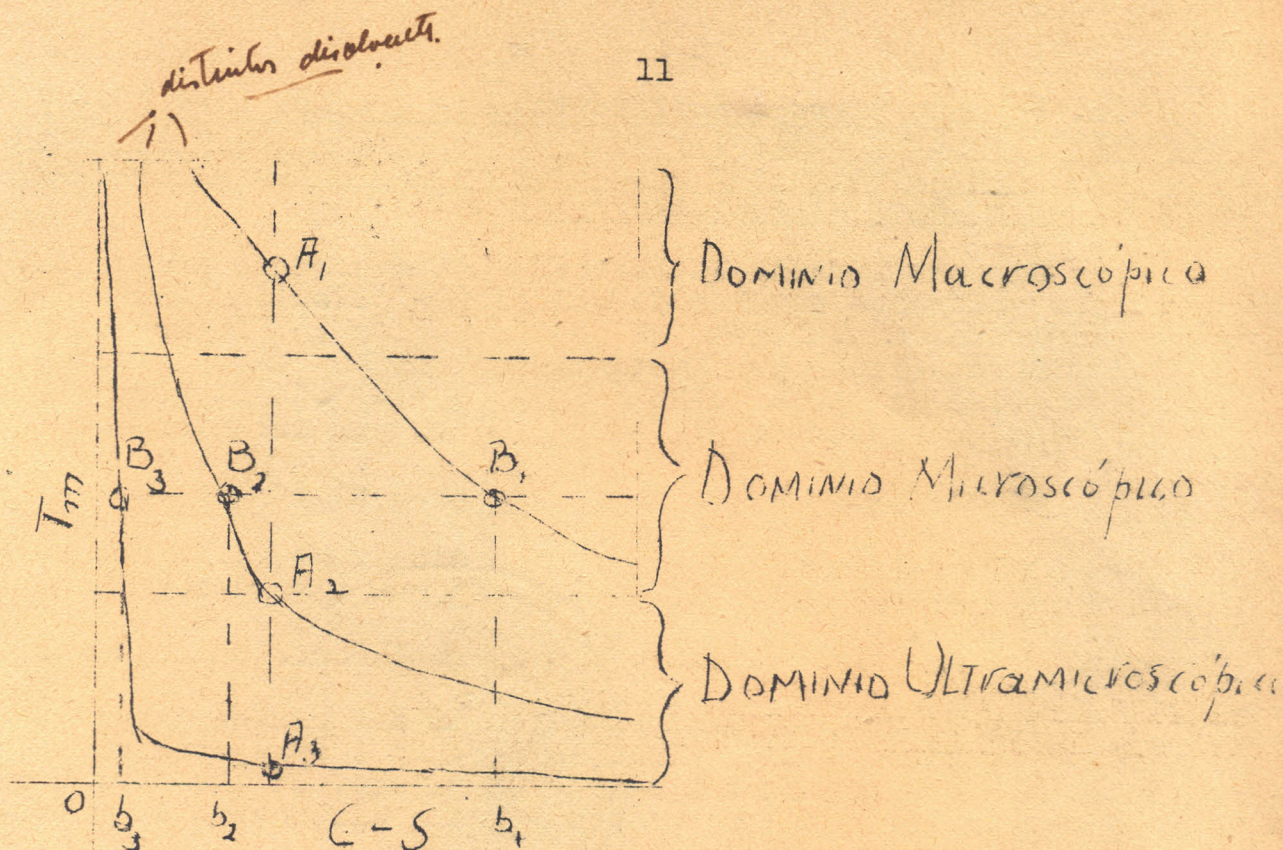 distintos disolvents.
11
A₁
Dominio Macroscópico
B₃
B₂
B₁
Tm
Dominio Microscópico
A₂
Dominio Ultramicroscópico
A₃
O
b₃
b₂
C-S
b₁